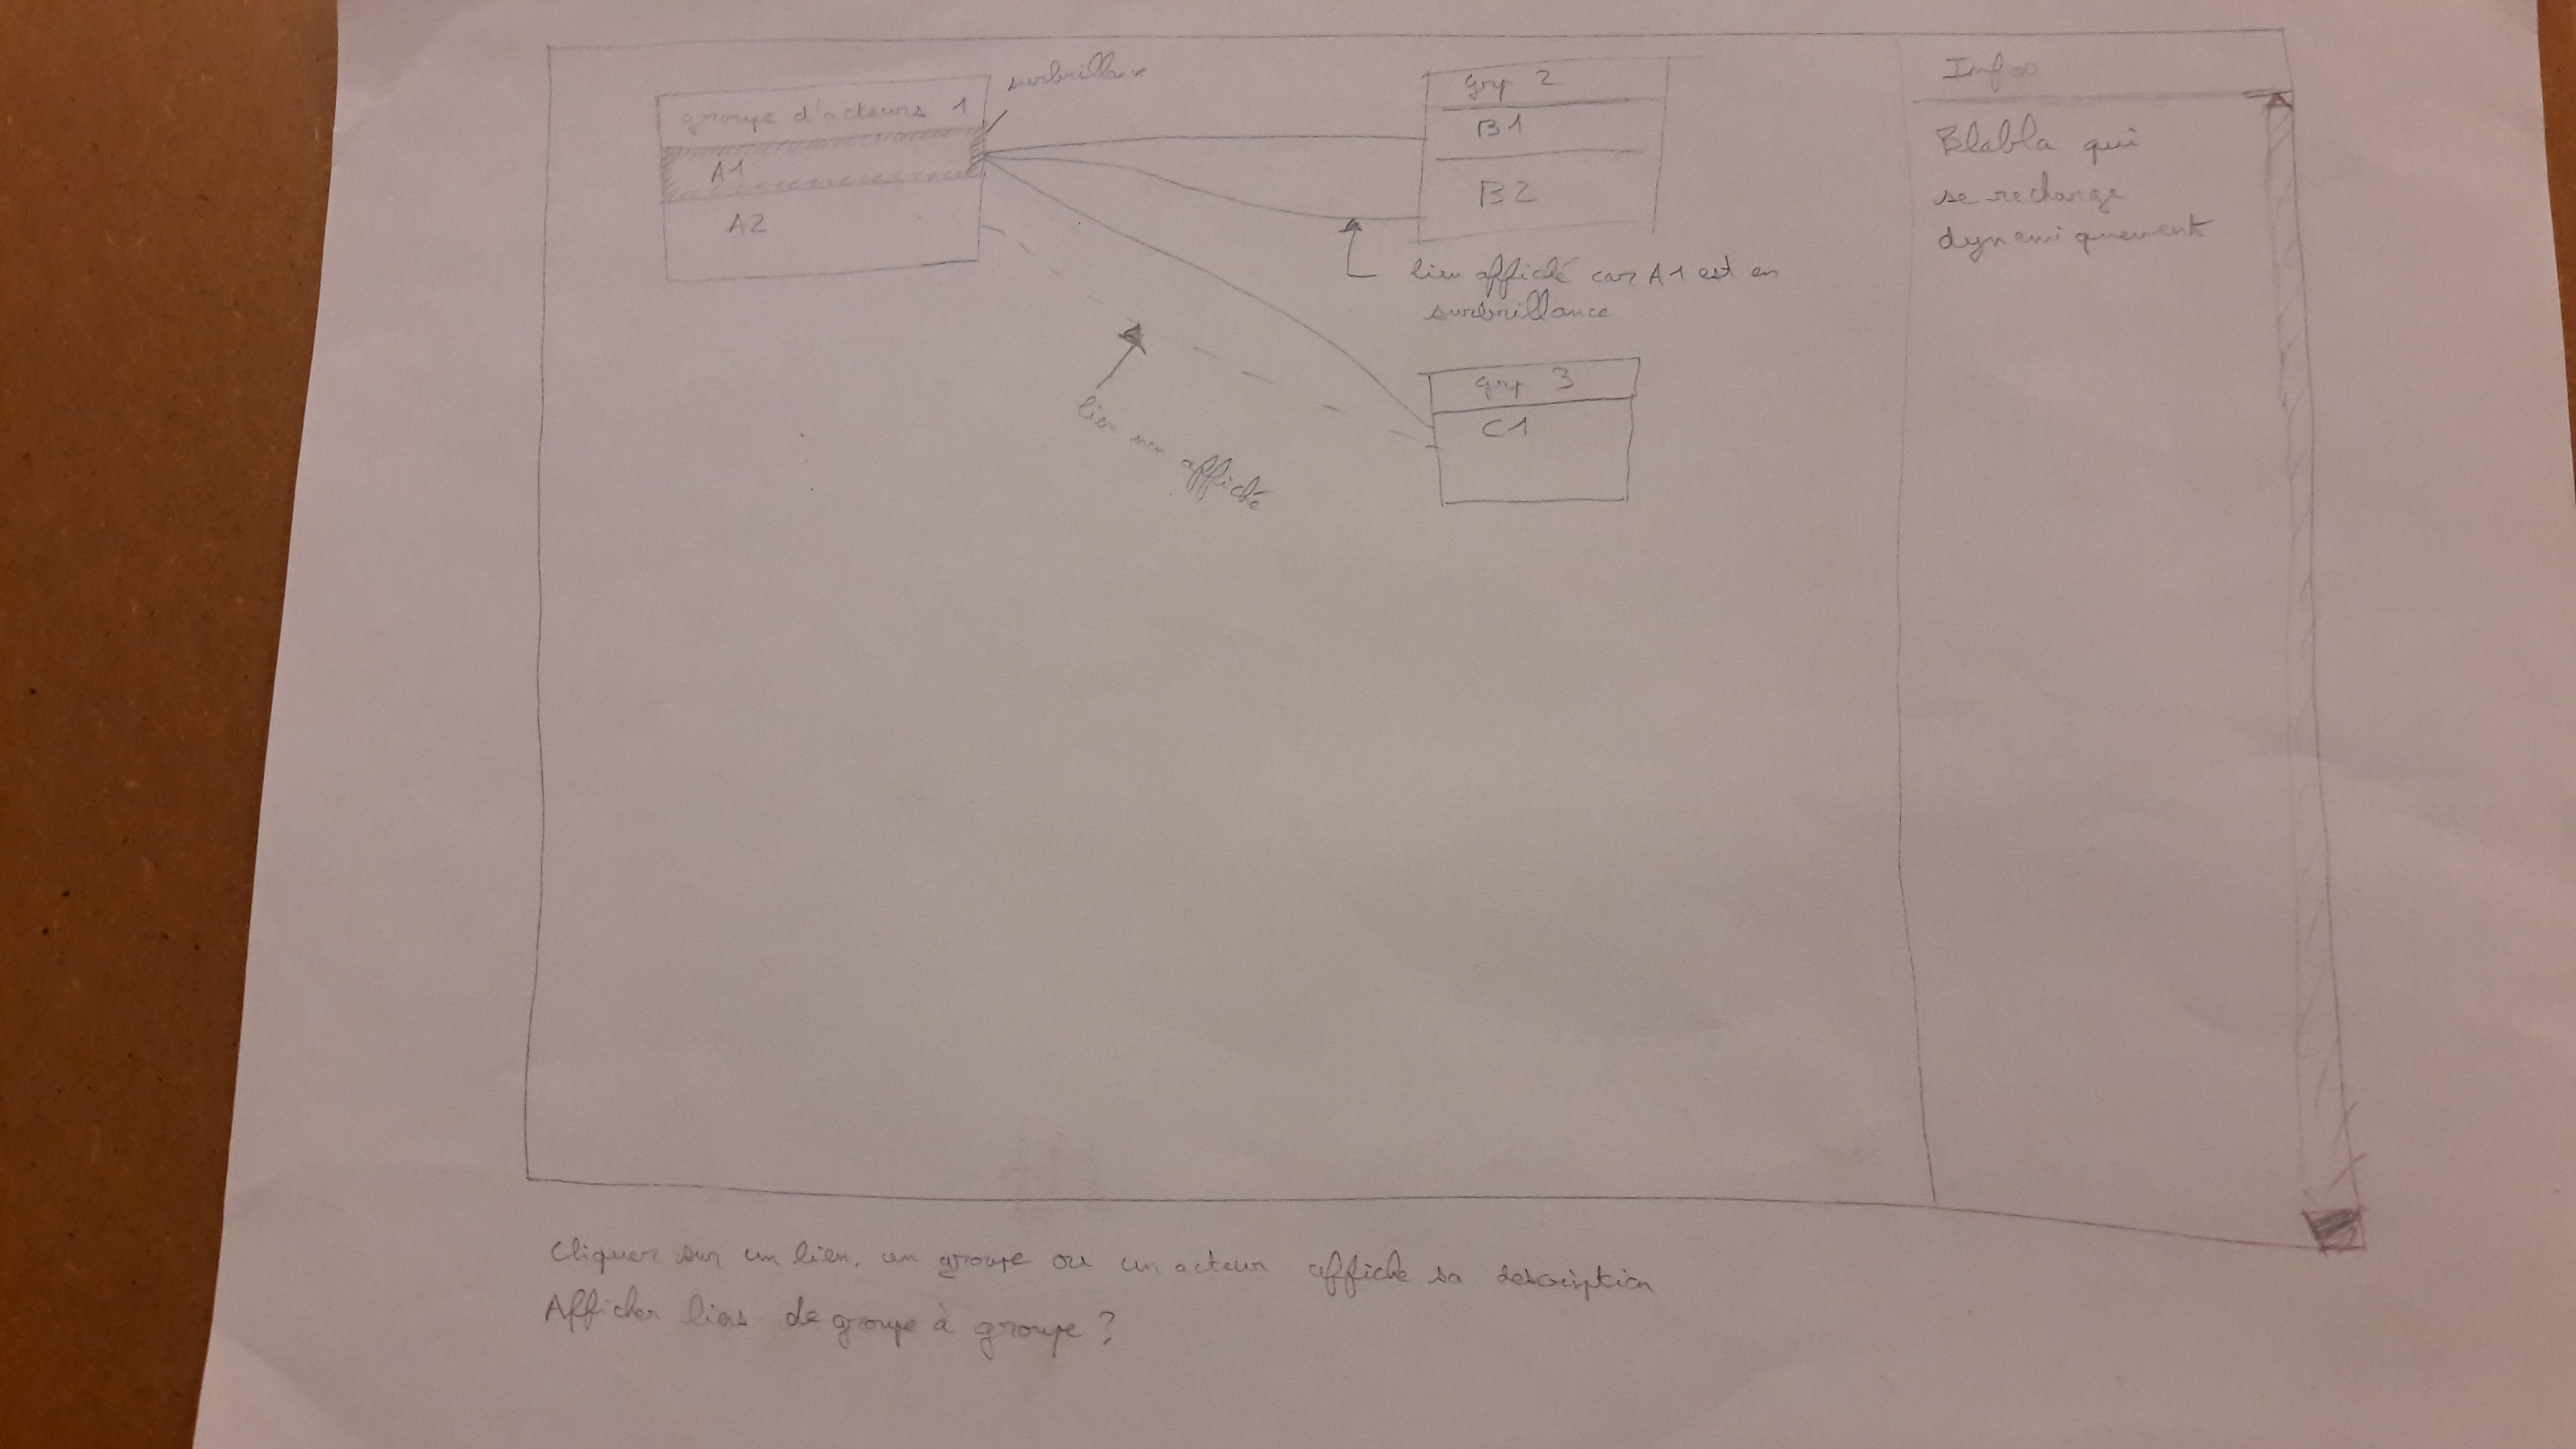 groupe d'acteurs 1
A1
A2
surbrillance
grp 2
B1
B2
lien affiché car A1 est en
surbrillance
lien non affiché
grp 3
C1
Infos
Blabla qui
se recharge
dynamiquement
Cliquer sur un lien, un groupe ou un acteur affiche sa description
Afficher liens de groupe à groupe ?